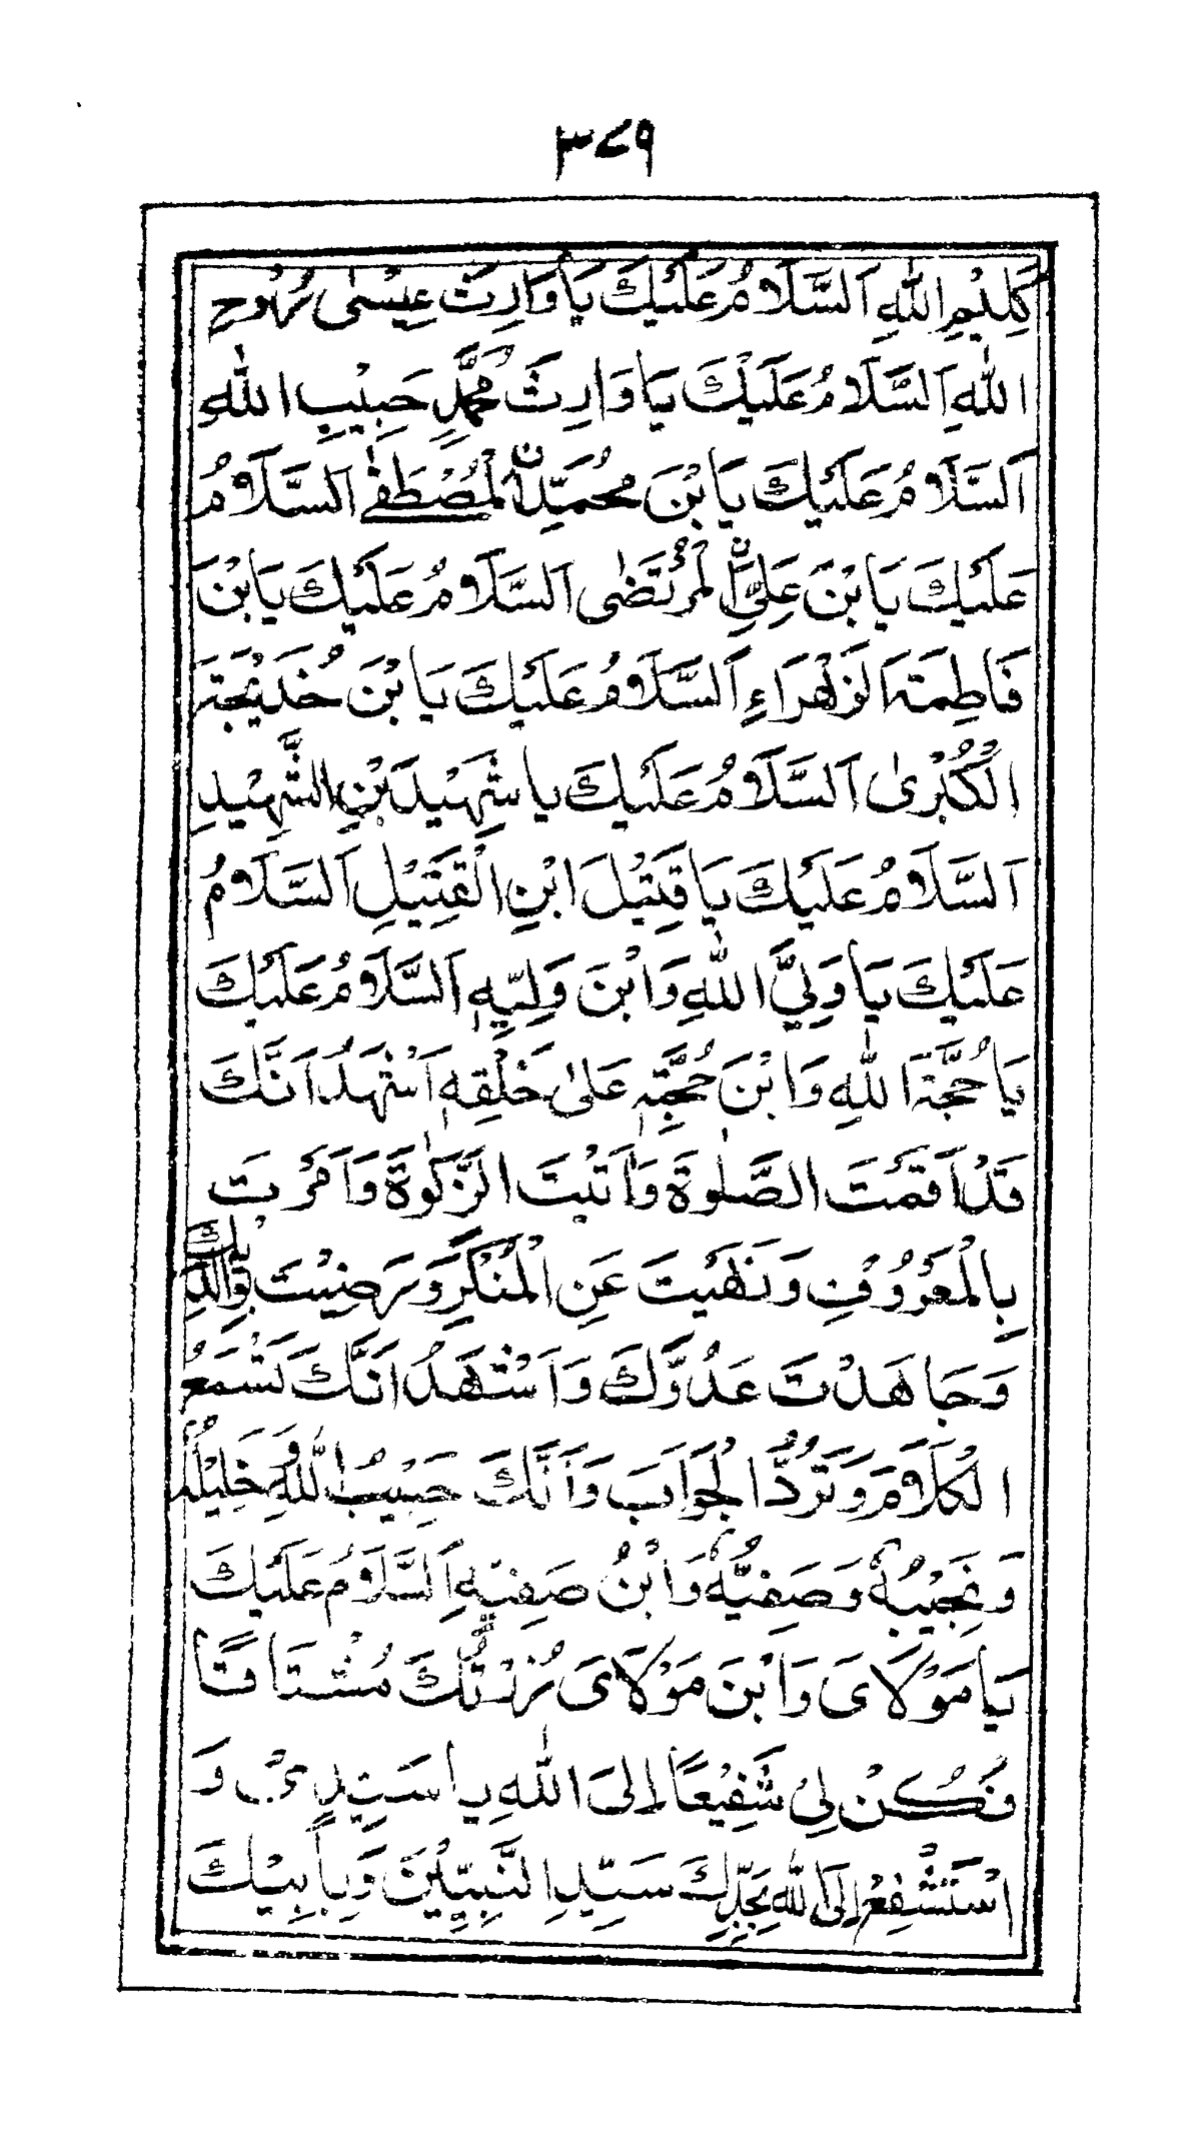 ۳۷۹
كَلِيْمِ اللّٰهِ اَلسَّلَامُ عَلَيْكَ يَا وَارِثَ عِيْسٰى رُوْحِ
اللّٰهِ اَلسَّلَامُ عَلَيْكَ يَا وَارِثَ مُحَمَّدٍ حَبِيْبِ اللّٰهِ
اَلسَّلَامُ عَلَيْكَ يَابْنَ مُحَمَّدِنِ الْمُصْطَفٰى اَلسَّلَامُ
عَلَيْكَ يَابْنَ عَلِيِّنِ الْمُرْتَضٰى اَلسَّلَامُ عَلَيْكَ يَابْنَ
فَاطِمَةَ الزَّهْرَاءِ اَلسَّلَامُ عَلَيْكَ يَابْنَ خَدِيْجَةَ
الْكُبْرٰى اَلسَّلَامُ عَلَيْكَ يا شَهِيْدَ بْنِ الشَّهِيْدِ
اَلسَّلَامُ عَلَيْكَ يَا قَتِيْلَ ابْنِ الْقَتِيْلِ اَلسَّلَامُ
عَلَيْكَ يَا وَلِيَّ اللّٰهِ وَابْنَ وَلِيِّهٖ اَلسَّلَامُ عَلَيْكَ
يَا حُجَّةَ اللّٰهِ وَابْنَ حُجَّتِهٖ عَلٰى خَلْقِهٖ اَشْهَدُ اَنَّكَ
قَدْ اَقَمْتَ الصَّلٰوةَ وَاٰتَيْتَ الزَّكٰوةَ وَاَمَرْتَ
بِالْمَعْرُوْفِ وَنَهَيْتَ عَنِ الْمُنْكَرِ وَرَضِيْتَ بِوَالِدَيْكَ
وَجَاهَدْتَ عَدُوَّكَ وَاَشْهَدُ اَنَّكَ تَسْمَعُ
الْكَلَامَ وَتَرُدُّ الْجَوَابَ وَاَنَّكَ حَبِيْبُ اللّٰهِ وَخَلِيْلُهٗ
وَنَجِيْبُهٗ وَصَفِيُّهٗ وَابْنُ صَفِيِّهٖ اَلسَّلَامُ عَلَيْكَ
يَا مَوْلَاىَ وَابْنَ مَوْلَاىَ زُرْتُكَ مُشْتَاقًا
فَكُنْ لِىْ شَفِيْعًا اِلَى اللّٰهِ يا سَيِّدِىْ وَ
اَسْتَشْفِعُ اِلَى اللّٰهِ بِجَدِّكَ سَيِّدِ النَّبِيِّيْنَ وَبِاَبِيْكَ